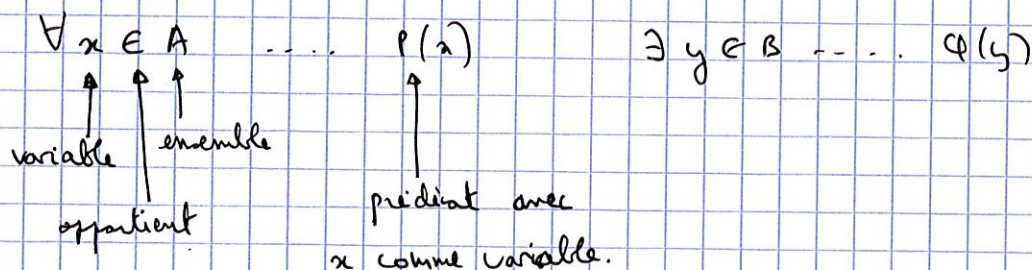 ∀ x ∈ A ..... P(x) ∃ y ∈ B ..... φ(y)
variable
ensemble
appartient
prédicat avec
x comme variable.